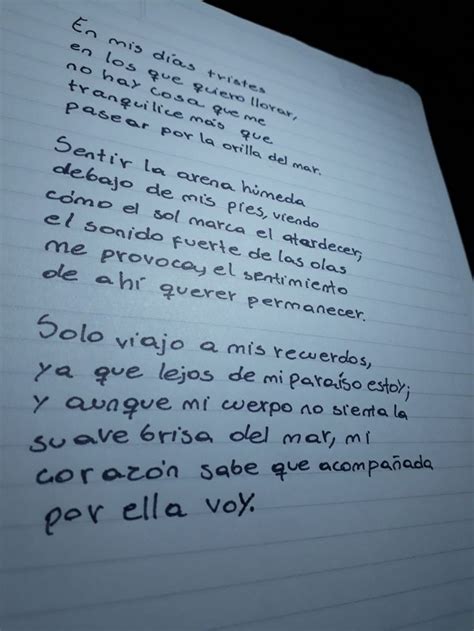 En mis días tristes
en los que quiero llorar,
no hay cosa que me
tranquilice más que
pasear por la orilla del mar.
Sentir la arena húmeda
debajo de mis pies, viendo
cómo el sol marca el atardecer,
el sonido fuerte de las olas
me provoca, el sentimiento
de ahí querer permanecer.
Solo viajo a mis recuerdos,
ya que lejos de mi paraíso estoy;
y aunque mi cuerpo no sienta la
suave brisa del mar, mi
corazón sabe que acompañada
por ella voy.